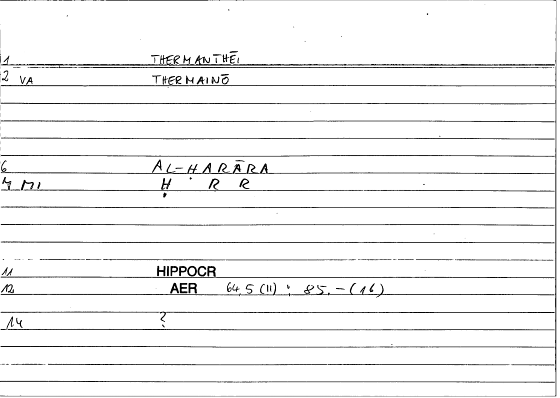 1 THERMANTHĒI
2 VA THERMAINŌ
6 AL-ḤARĀRA
7 MI Ḥ R R
11 HIPPOCR
12 AER 64,5 (11) ; 85,-(16)
14 ?